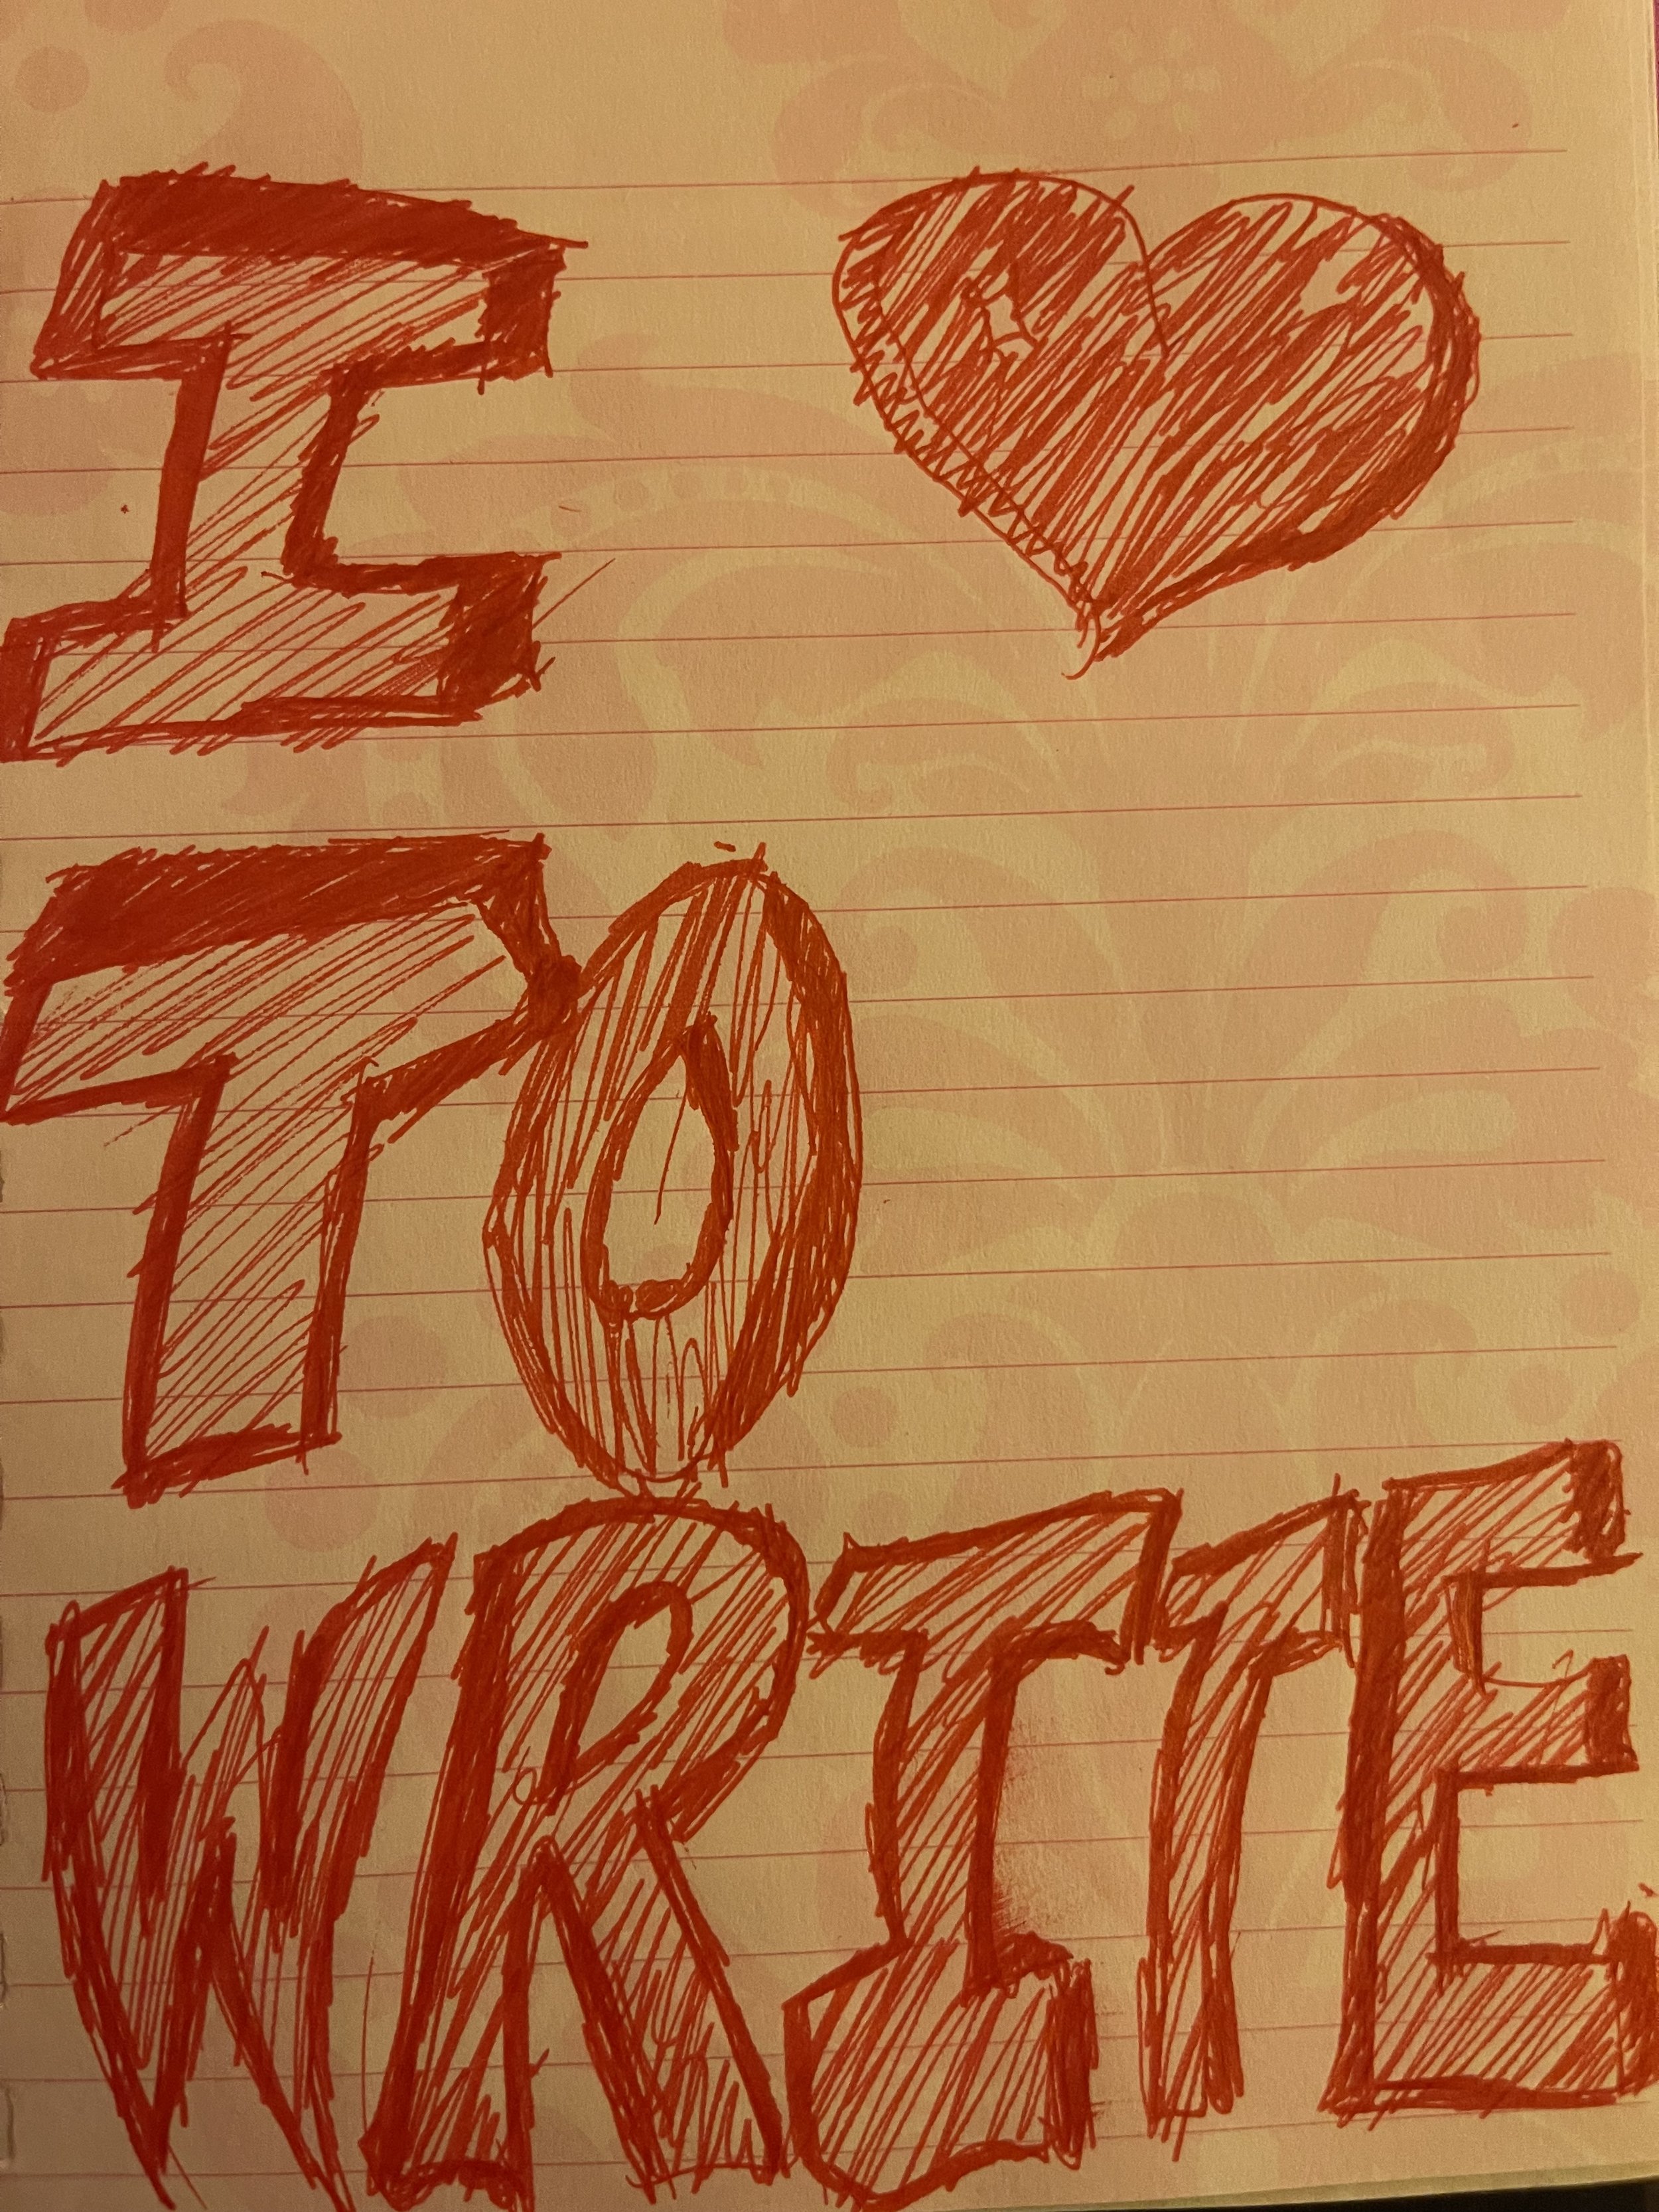 I ❤
TO
WRITE